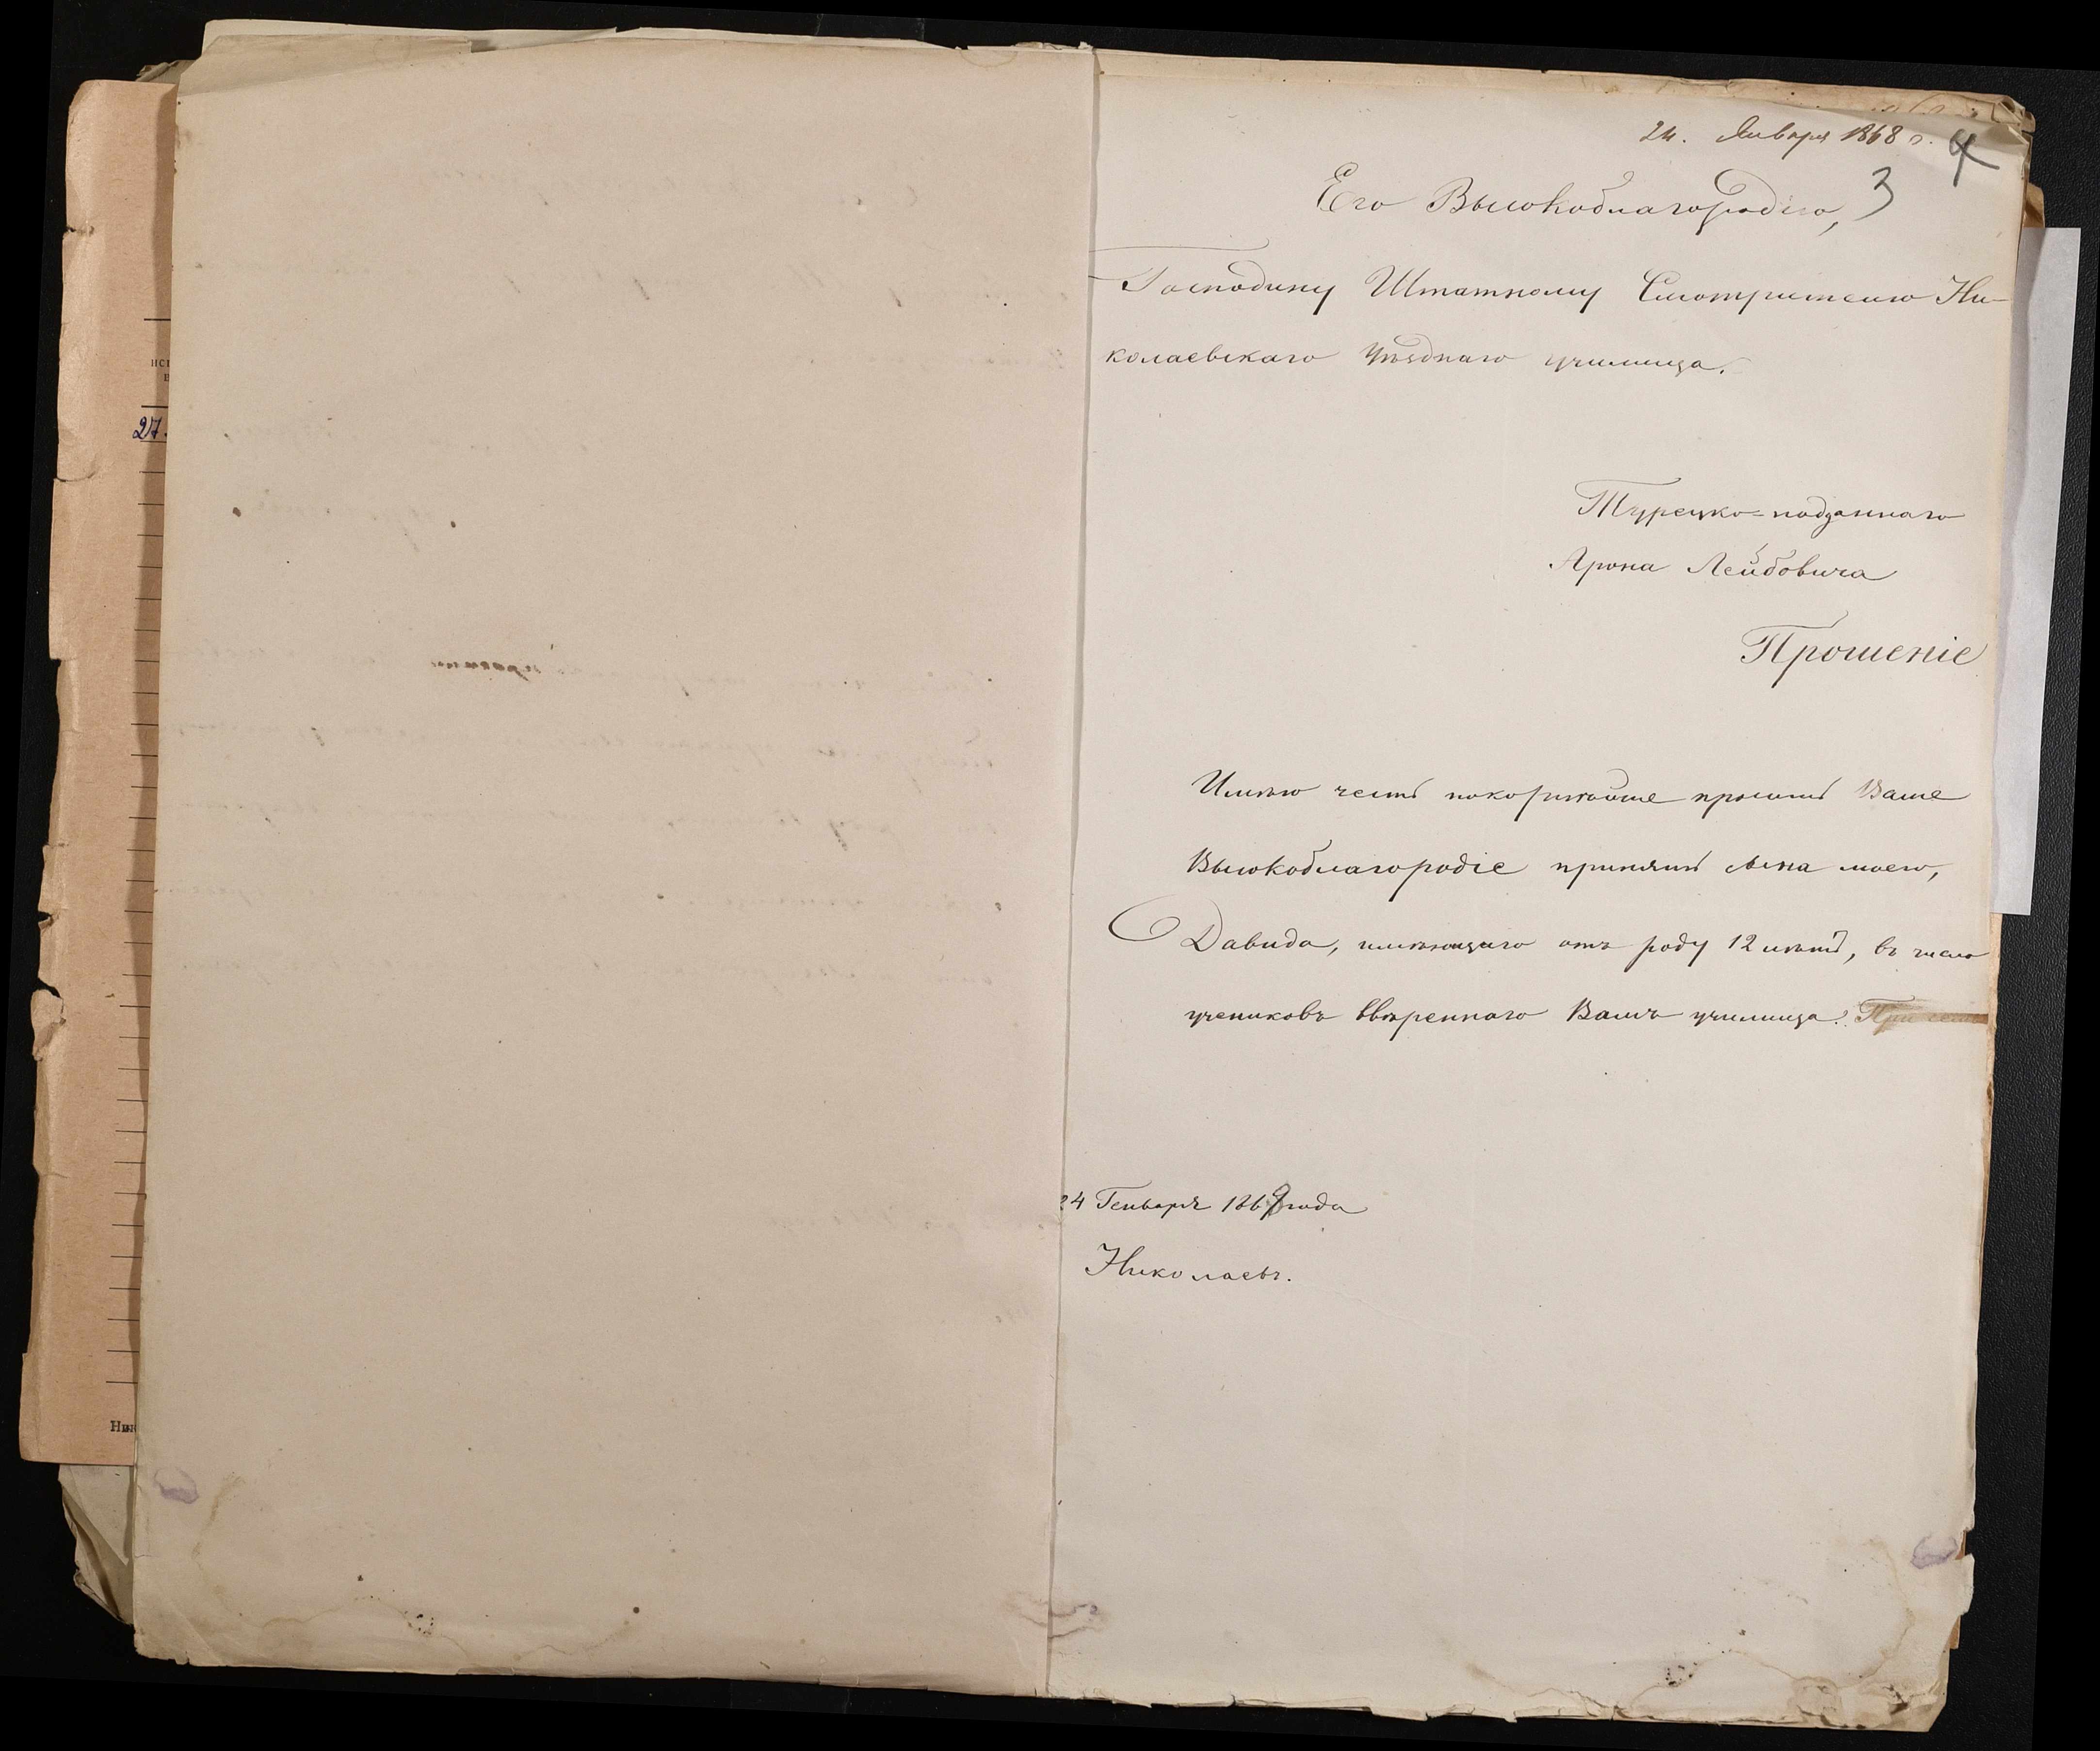 27.
24. Января 1868 г.
4
3
Его Высокоблагородію,
Господину Штатному Смотрителю Ни-
колаевскаго Уѣзднаго училища.
Турецко=подданнаго
Арона Лейбовича
Прошеніе
Имѣю честь покорнѣйше просить Ваше
Высокоблагородіе принять сына моего,
Давида, имѣющаго отъ роду 12 лѣтъ, въ число
учениковъ ввѣреннаго Вамъ училища. При семъ
24 Генваря 1868 года
Николаевъ.